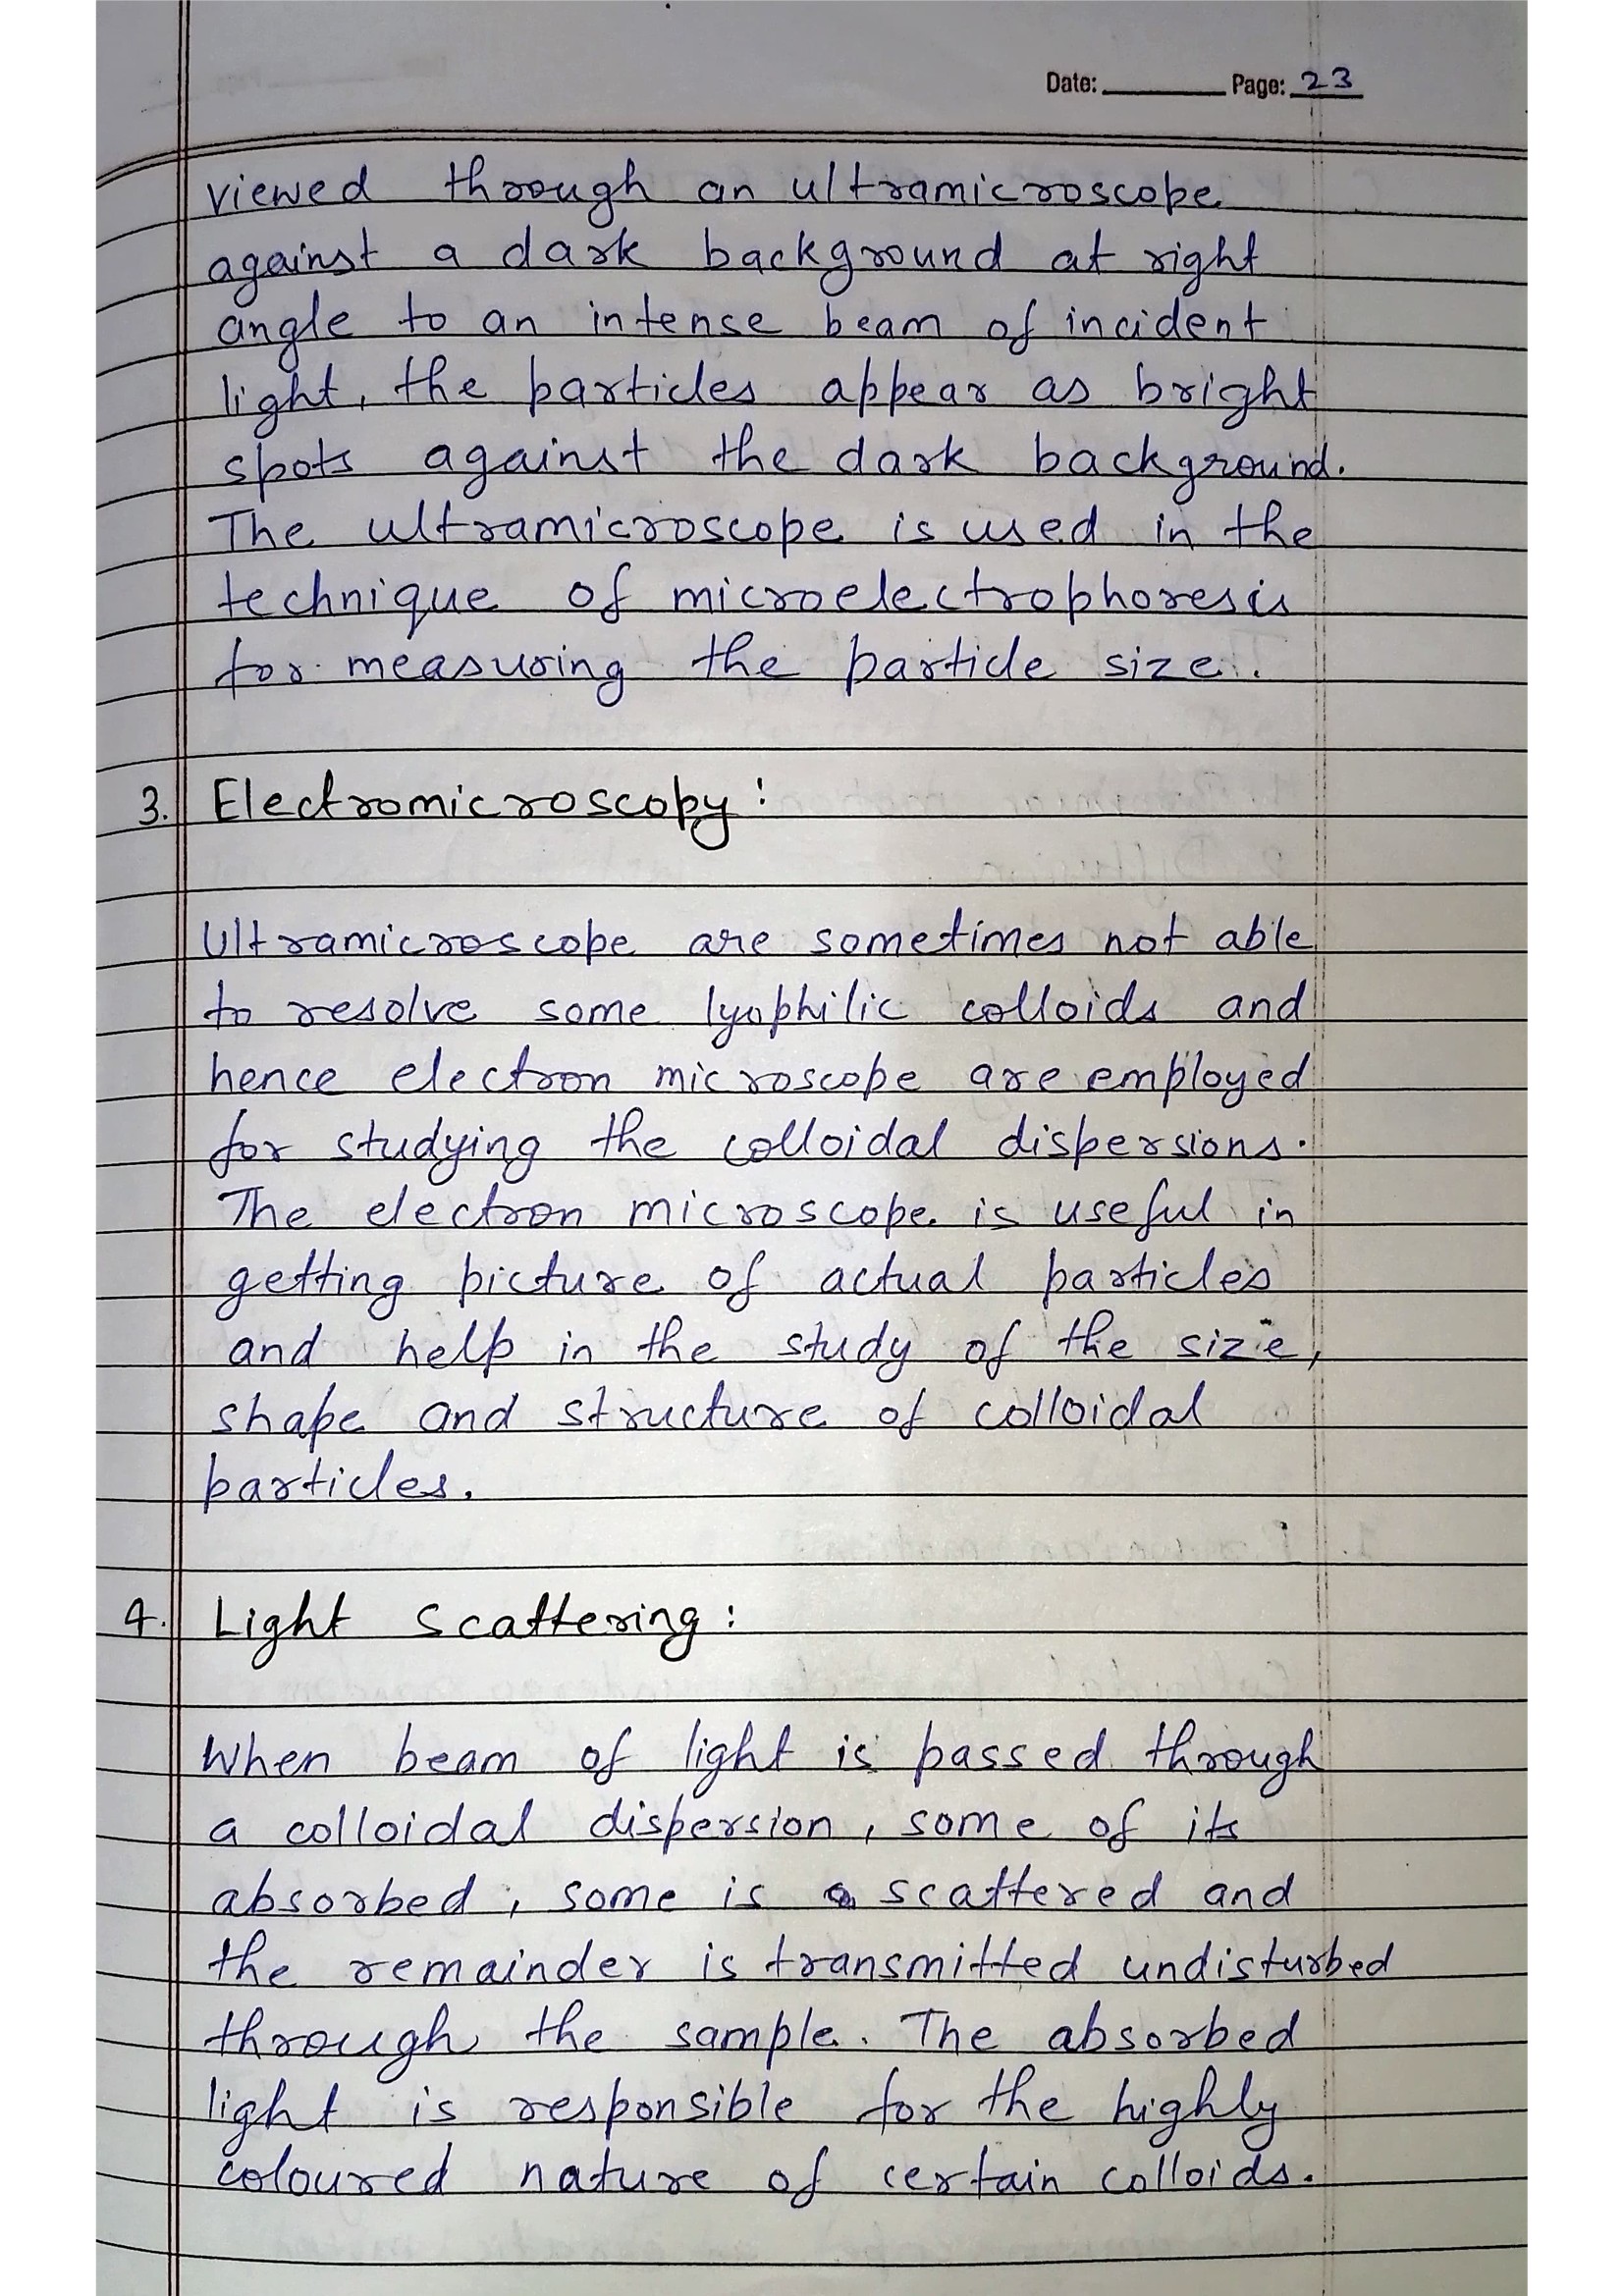 Date: Page: 23
viewed through an ultramicroscope
against a dark background at right
angle to an intense beam of incident
light, the particles appear as bright
spots against the dark background.
The ultramicroscope is used in the
technique of microelectrophoresis
for measuring the particle size.
3. Electromicroscopy:
Ultramicroscope are sometimes not able
to resolve some lyophilic colloids and
hence electron microscope are employed
for studying the colloidal dispersions.
The electron microscope is useful in
getting picture of actual particles
and help in the study of the size,
shape and structure of colloidal
particles.
4. Light Scattering:
When beam of light is passed through
a colloidal dispersion, some of its
absorbed, some is scattered and
the remainder is transmitted undisturbed
through the sample. The absorbed
light is responsible for the highly
coloured nature of certain colloids.